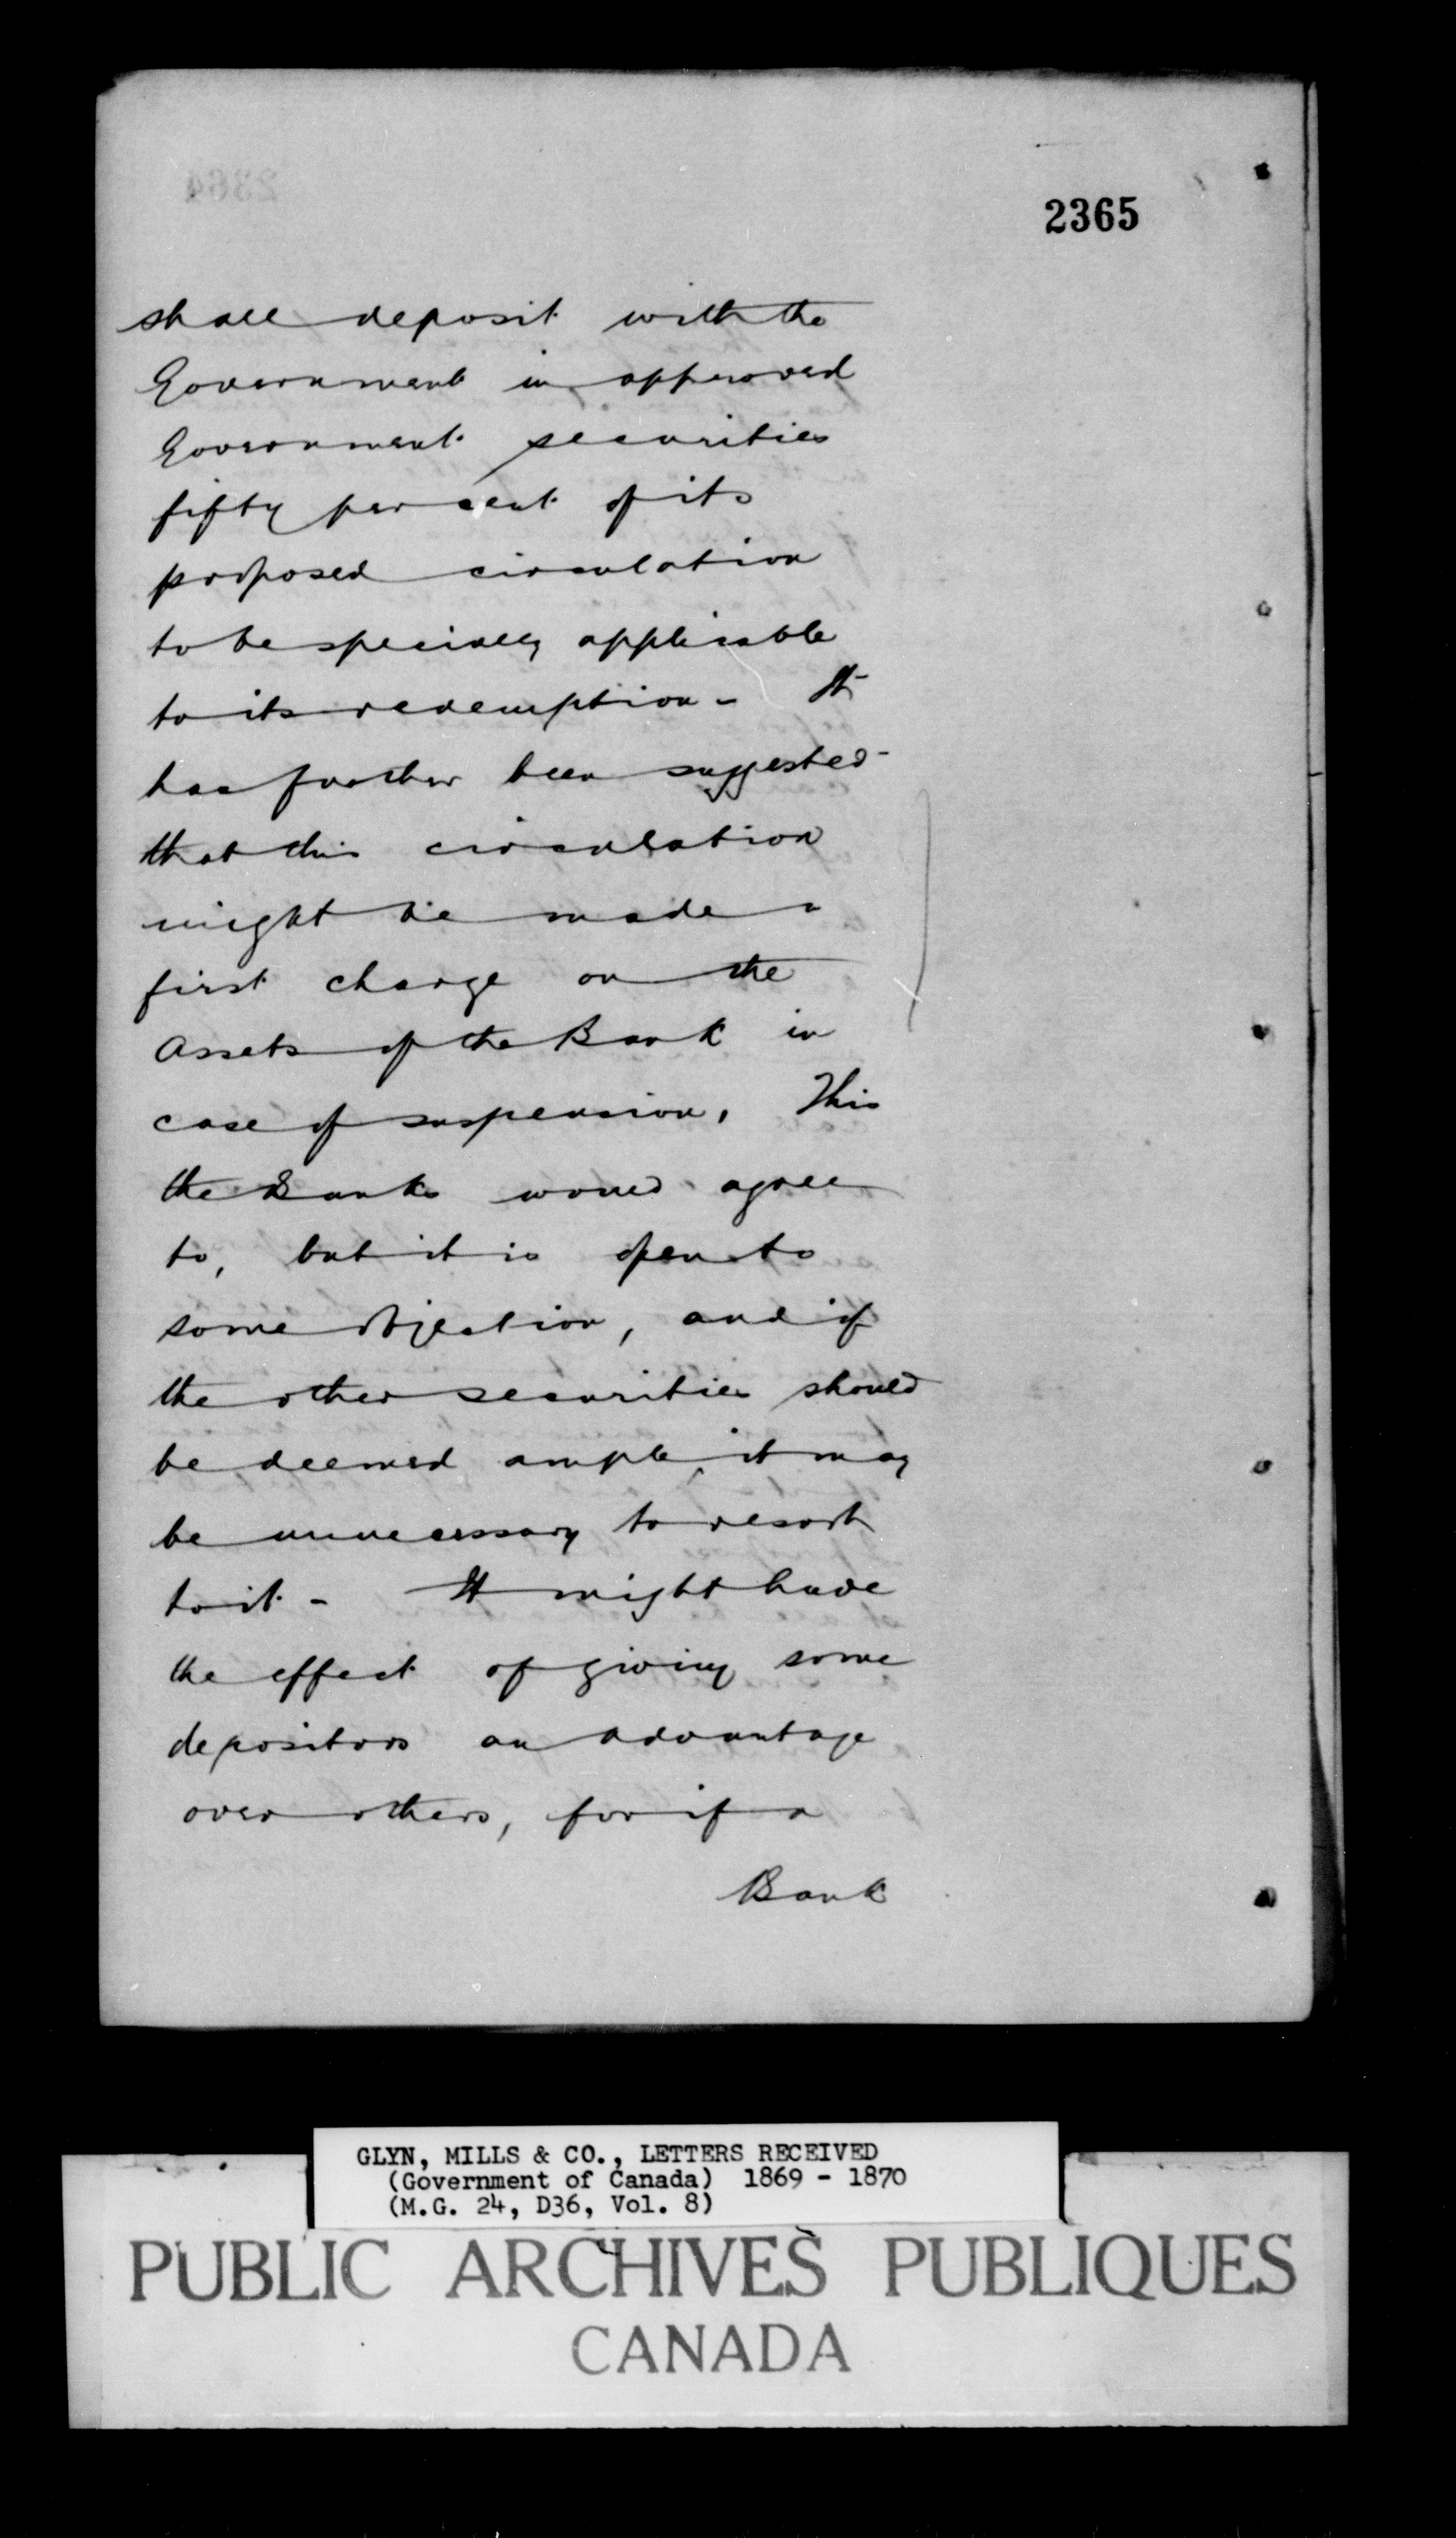 2365
shall deposit with the
Government in approved
Government securities
fifty per cent of its
proposed circulation
to be specially applicable
to its redemption - It
has further been suggested
that this circulation
might be made a
first charge on the
Assets of the Bank in
case of suspension, This
the Banks would agree
to, but it is open to
some objection, and if
the other securities should
be deemed ample, it may
be unnecessary to resort
to it - It might have
the effect of giving some
depositors an advantage
over others, for if a
Bank
GLYN, MILLS & CO., LETTERS RECEIVED
(Government of Canada) 1869 - 1870
(M.G. 24, D36, Vol. 8)
PUBLIC ARCHIVES PUBLIQUES
CANADA